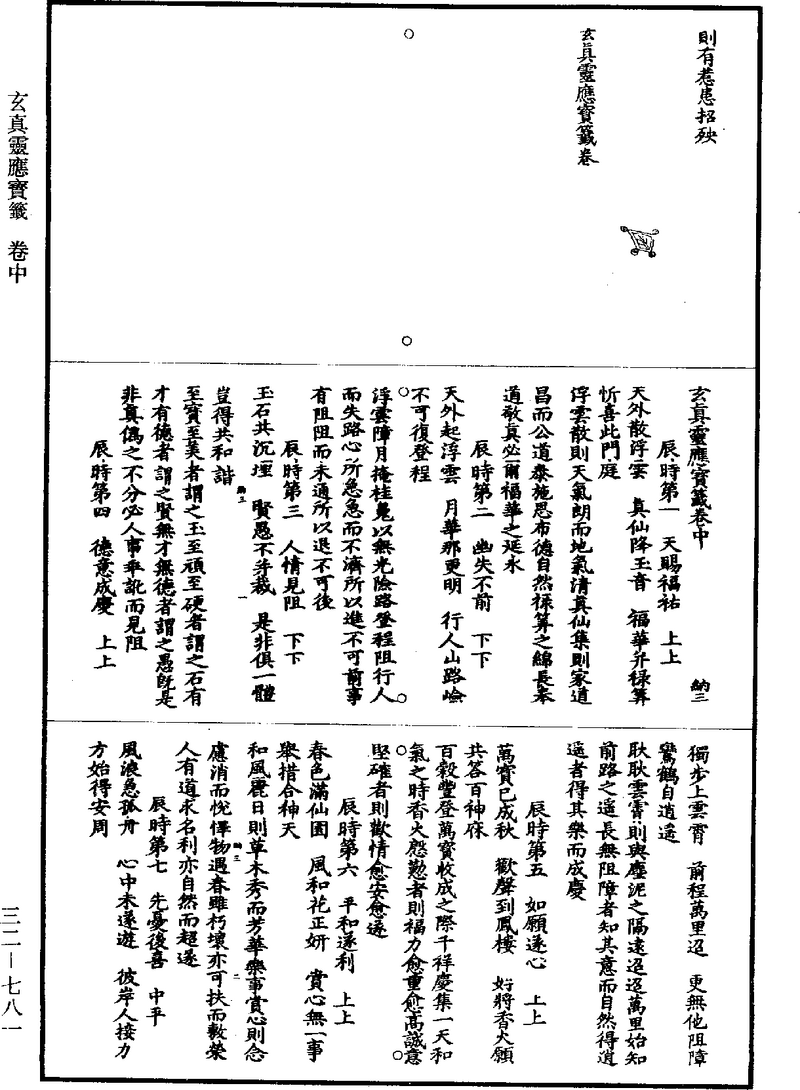 則有惹患招殃
玄真靈應寶籤卷
玄真靈應寶籤卷中
納三
辰時第一　天賜福祐　上上
天外散浮雲　真仙降玉音　福華并祿筭
忻喜此門庭
浮雲散則天氣朗而地氣清真仙集則家道
昌而公道泰施恩布德自然祿筭之綿長奉
道敬真必爾福華之延永
辰時第二　幽失不前　下下
天外起浮雲　月華那更明　行人山路嶮
不可復登程
浮雲障月掩桂魄以無光險路登程阻行人
而失路心所急急而不濟所以進不可前事
有阻阻而未通所以退不可後
辰時第三　人情見阻　下下
玉石共沉埋　賢愚不等裁　是非俱一體
豈得共和諧
至寶至美者謂之玉至頑至硬者謂之石有
才有德者謂之賢無才無德者謂之愚既是
非真偽之不分必人事乖訛而見阻
辰時第四　德意成慶　上上
獨步上雲霄　前程萬里迢　更無他阻障
鸞鶴自逍遙
耿耿雲霄則與塵泥之隔遠迢迢萬里始知
前路之遙長無阻障者知其意而自然得逍
遙者得其樂而成慶
辰時第五　如願遂心　上上
萬寶已成秋　歡聲到鳳樓　好將香火願
共答百神庥
百穀豐登萬寶收成之際千祥慶集一天和
氣之時香火慇懃者則福力愈重愈高誠意
堅確者則歡情愈安愈遂
辰時第六　平和遂利　上上
春色滿仙園　風和花正妍　賞心無一事
舉措合神天
和風麗日則草木秀而芳華樂事賞心則念
慮消而悅懌物遇春雖朽壞亦可扶而敷榮
人有道求名利亦自然而超遂
辰時第七　先憂後喜　中平
風浪急孤舟　心中未遂遊　彼岸人接力
方始得安周
玄真靈應寶籤　卷中
三二—七八一